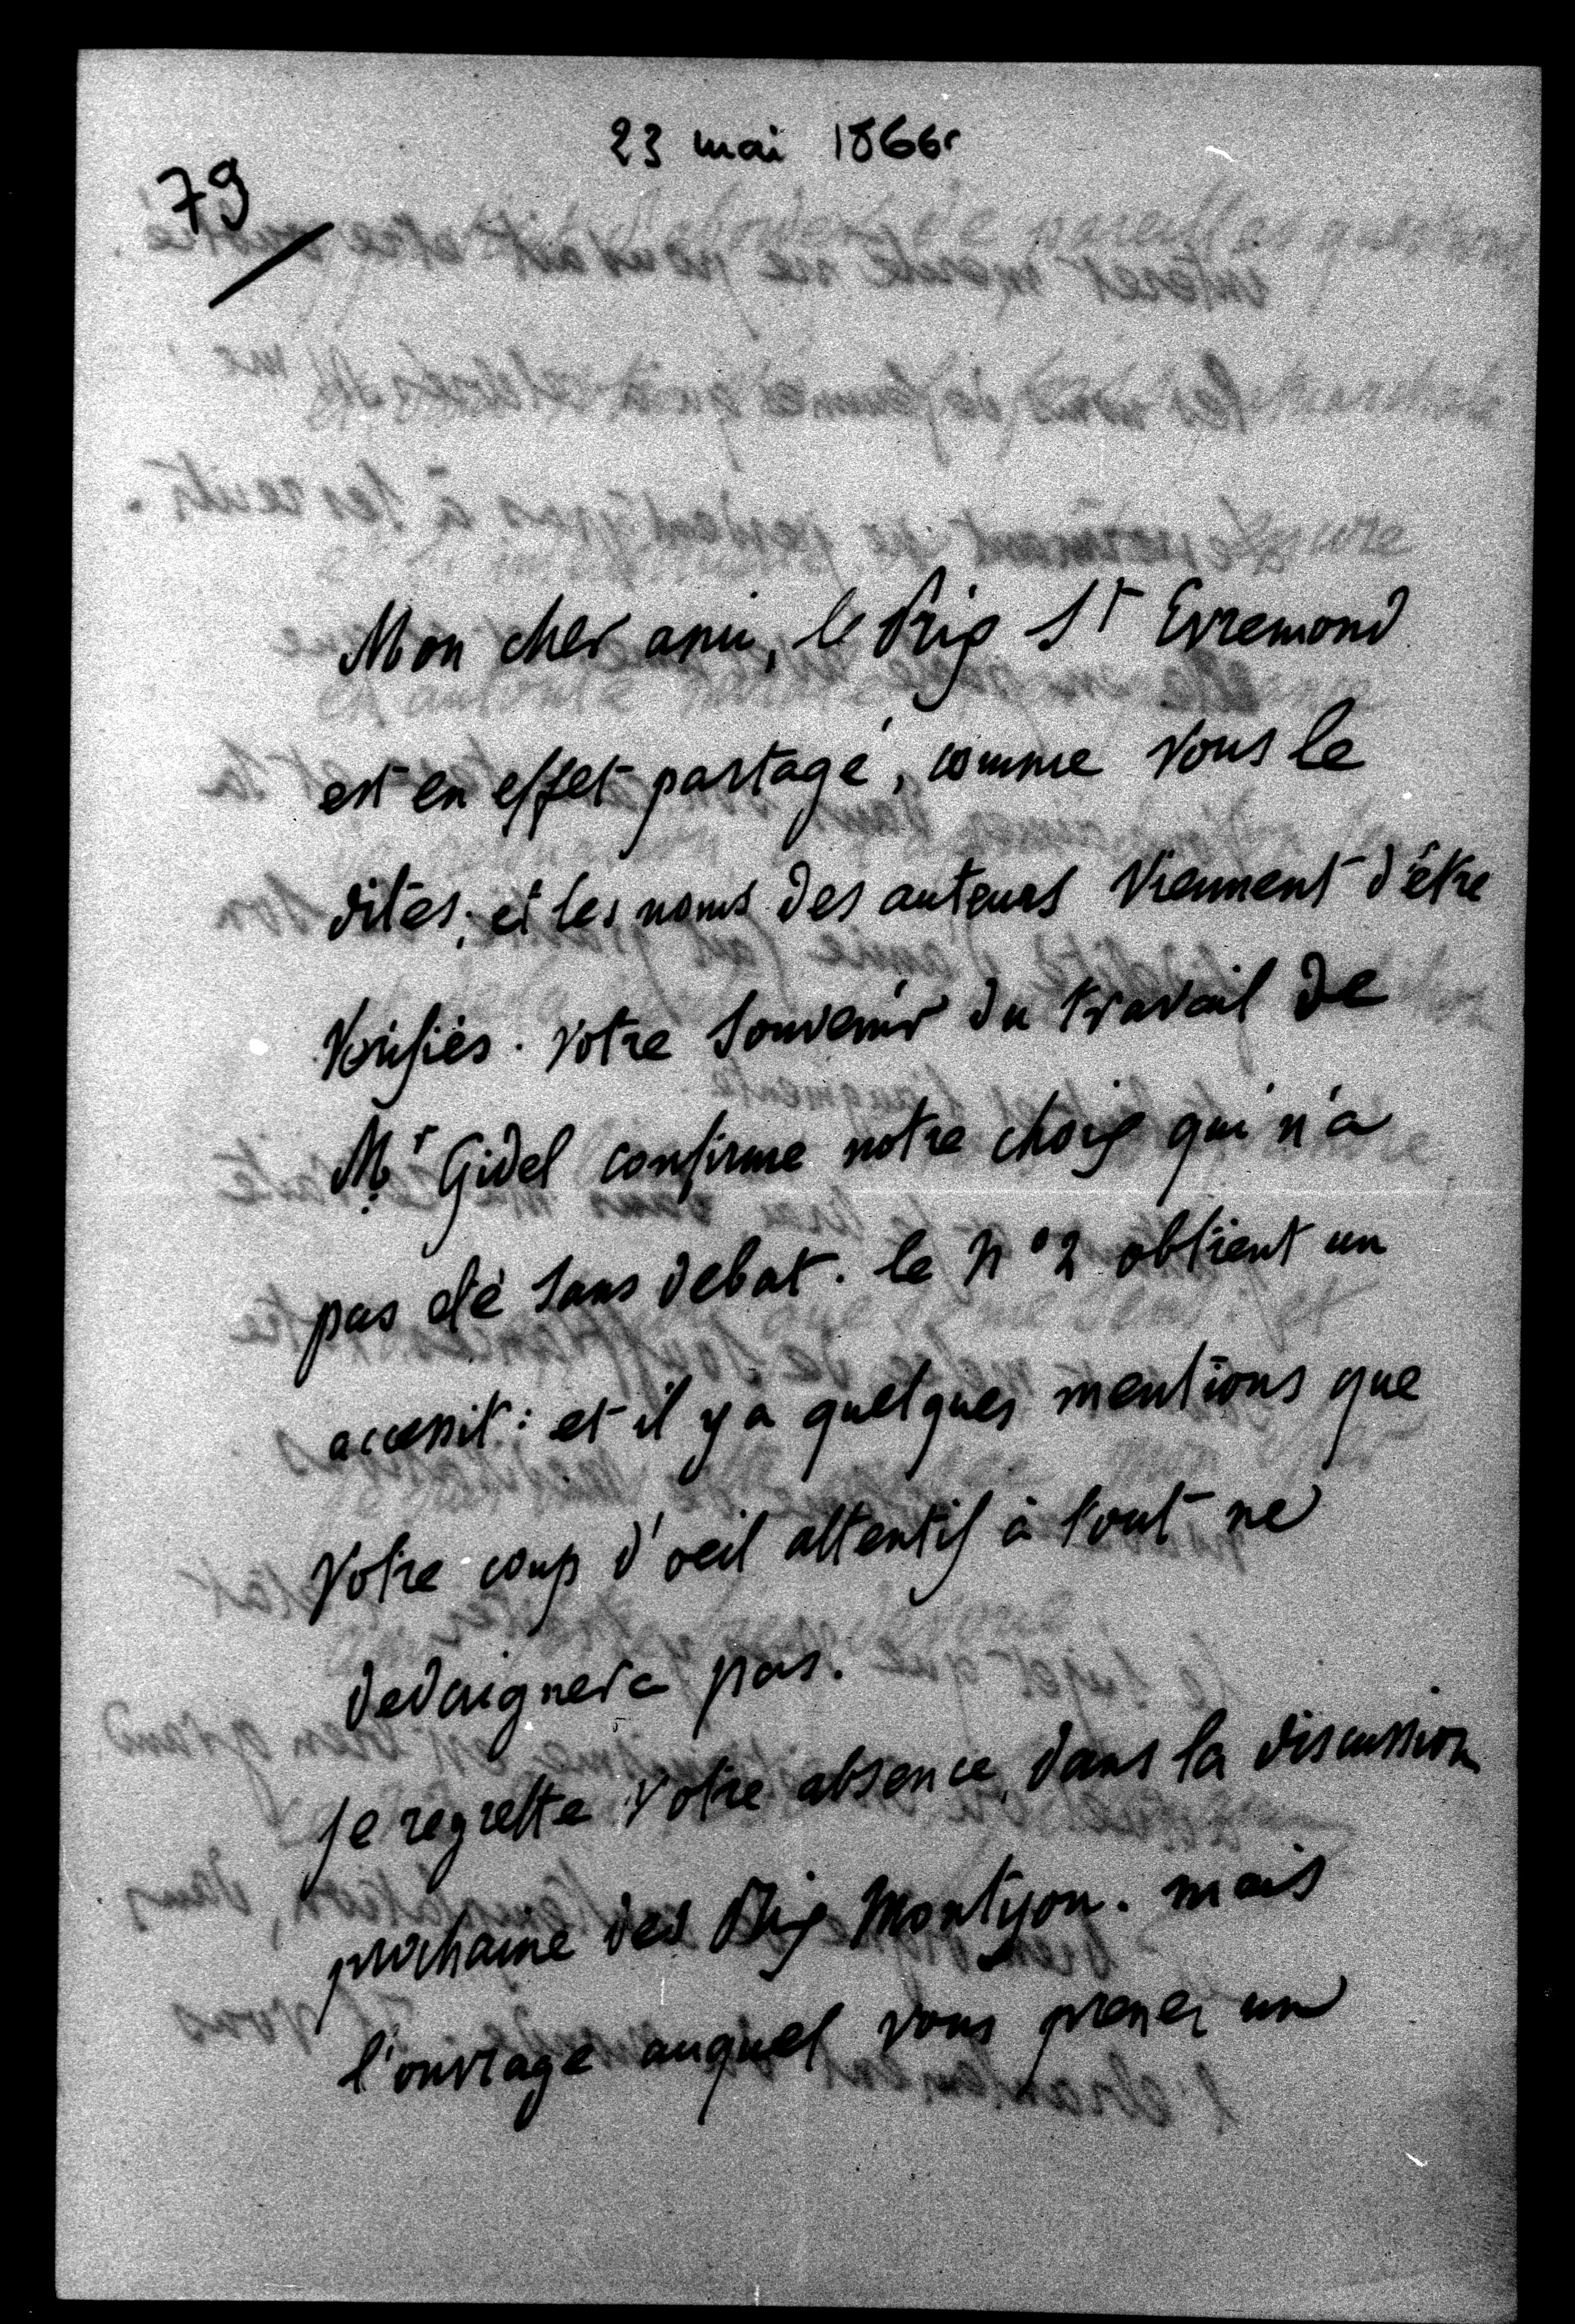 23 mai 1866
79
Mon cher ami, le Prix St Evremond
est en effet partagé, comme vous le
dites; et les noms des auteurs viennent d'être
vérifiés. votre souvenir du travail de
Mr Gidel confirme notre choix qui n'a
pas été sans debat. le n° 2 obtient un
accessit: et il y a quelques mentions que
votre coup d'oeil attentif à tout ne
dedaignera pas.
je regrette votre absence, dans la discussion
prochaine des Prix Montyon. mais
l'ouvrage auquel vous prenez un